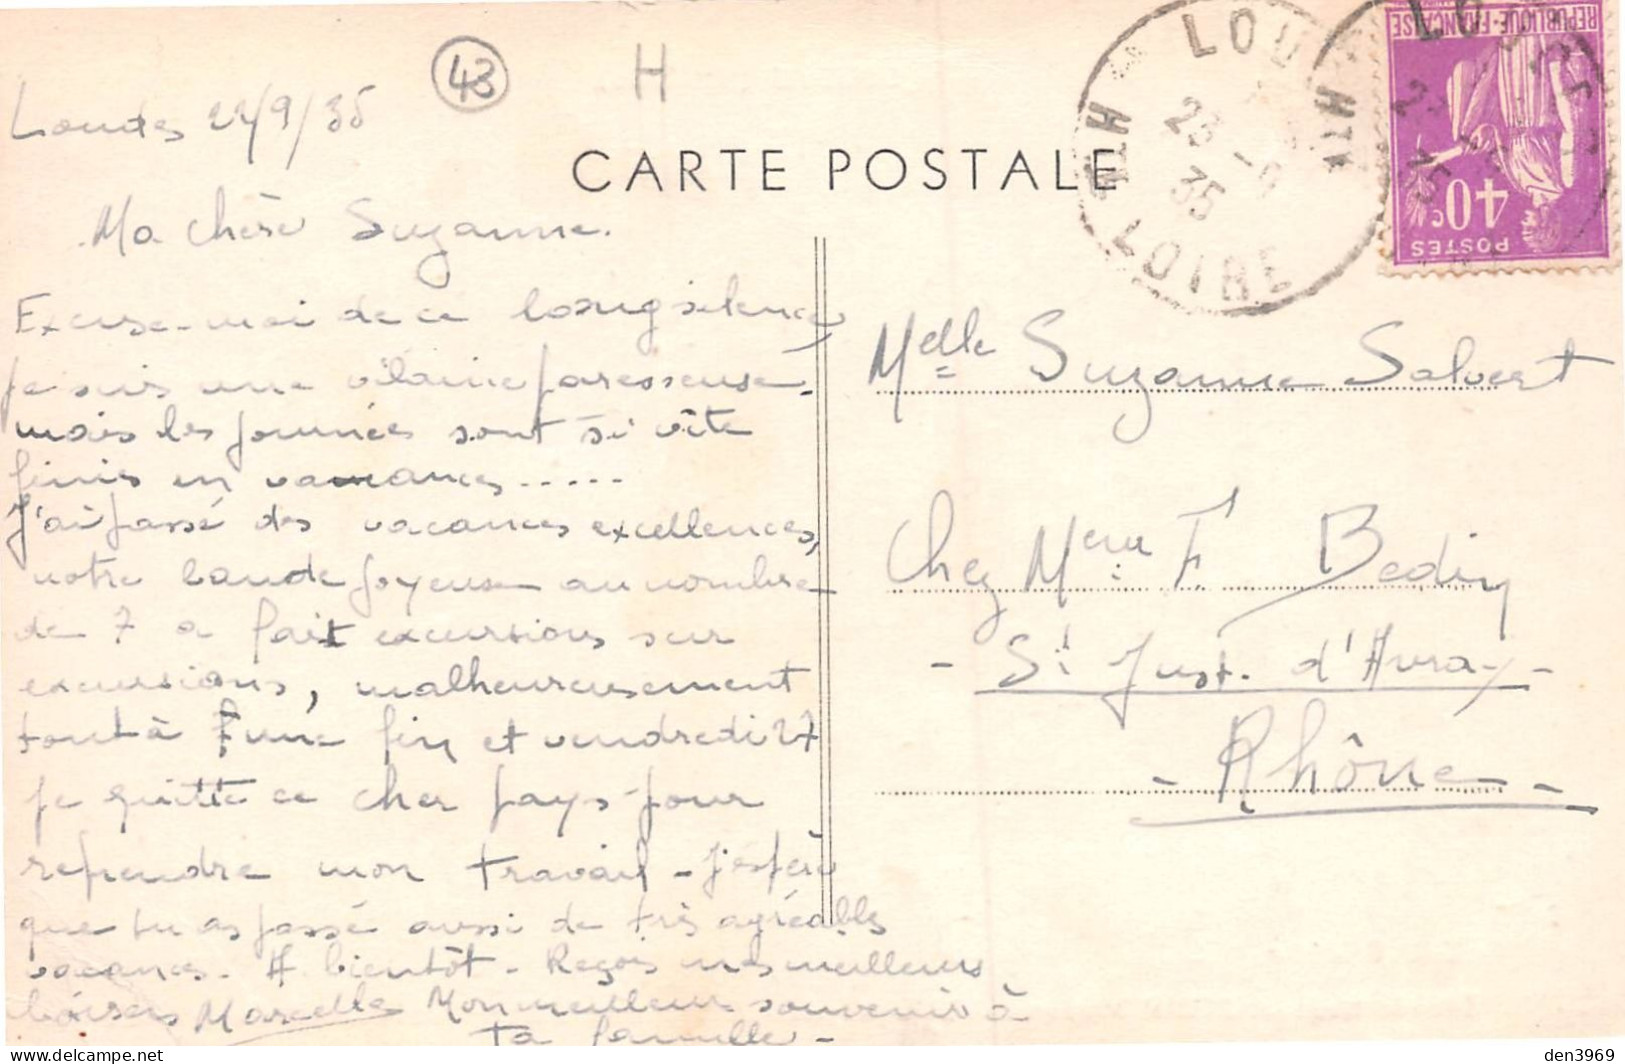 43
H
Loudes 22/9/35
CARTE POSTALE
LOUDES
23 -9
35
HTE LOIRE
REPUBLIQUE-FRANÇAISE
40c
POSTES
Ma chère Suzanne.
Excuse-moi de ce long silence,
je suis une vilaine paresseuse -
mais les journées sont si vite
finies en vacances.....
J'ai passé des vacances excellences,
notre bande joyeuse au nombre
de 7 a fait excursions sur
excursions, malheureusement
tout à une fin et vendredi 27
je quitte ce cher pays pour
reprendre mon travail - J'espère
que tu as passé aussi de très agréables
vacances. A bientôt - Reçois mes meilleurs
baisers Marcelle Mon meilleur souvenir à
ta famille -
Melle Suzanne Salvert
Chez Mme F. Bedin
- St Just. d'Avray -
- Rhône -
den3969